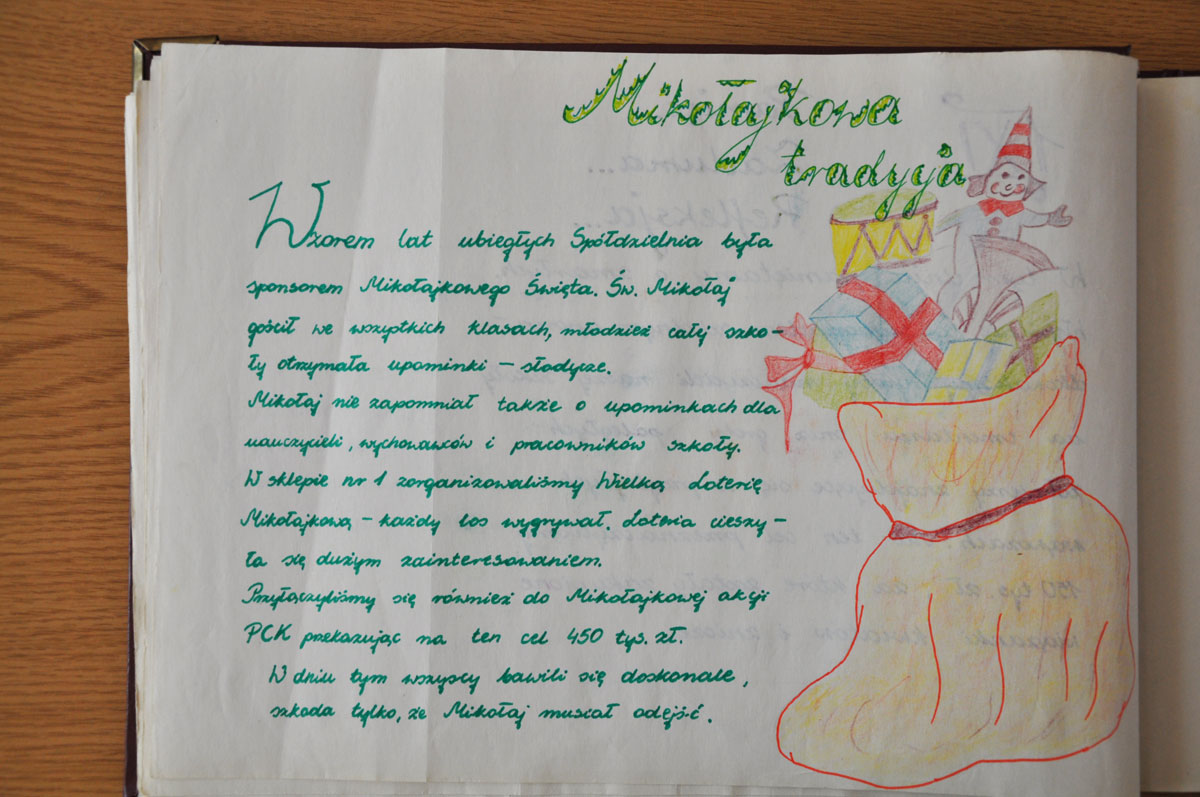 Mikołajkowa
tradycja
Wzorem lat ubiegłych Spółdzielnia była
sponsorem Mikołajkowego Święta. Św. Mikołaj
gościł we wszystkich klasach, młodzież całej szko-
ły otrzymała upominki – słodycze.
Mikołaj nie zapomniał także o upominkach dla
nauczycieli, wychowawców i pracowników szkoły.
W sklepie nr 1 zorganizowaliśmy Wielką Loterię
Mikołajkową – każdy los wygrywał. Loteria cieszy-
ła się dużym zainteresowaniem.
Przyłączyliśmy się również do Mikołajkowej akcji
PCK przekazując na ten cel 450 tys. zł.
W dniu tym wszyscy bawili się doskonale,
szkoda tylko, że Mikołaj musiał odejść.